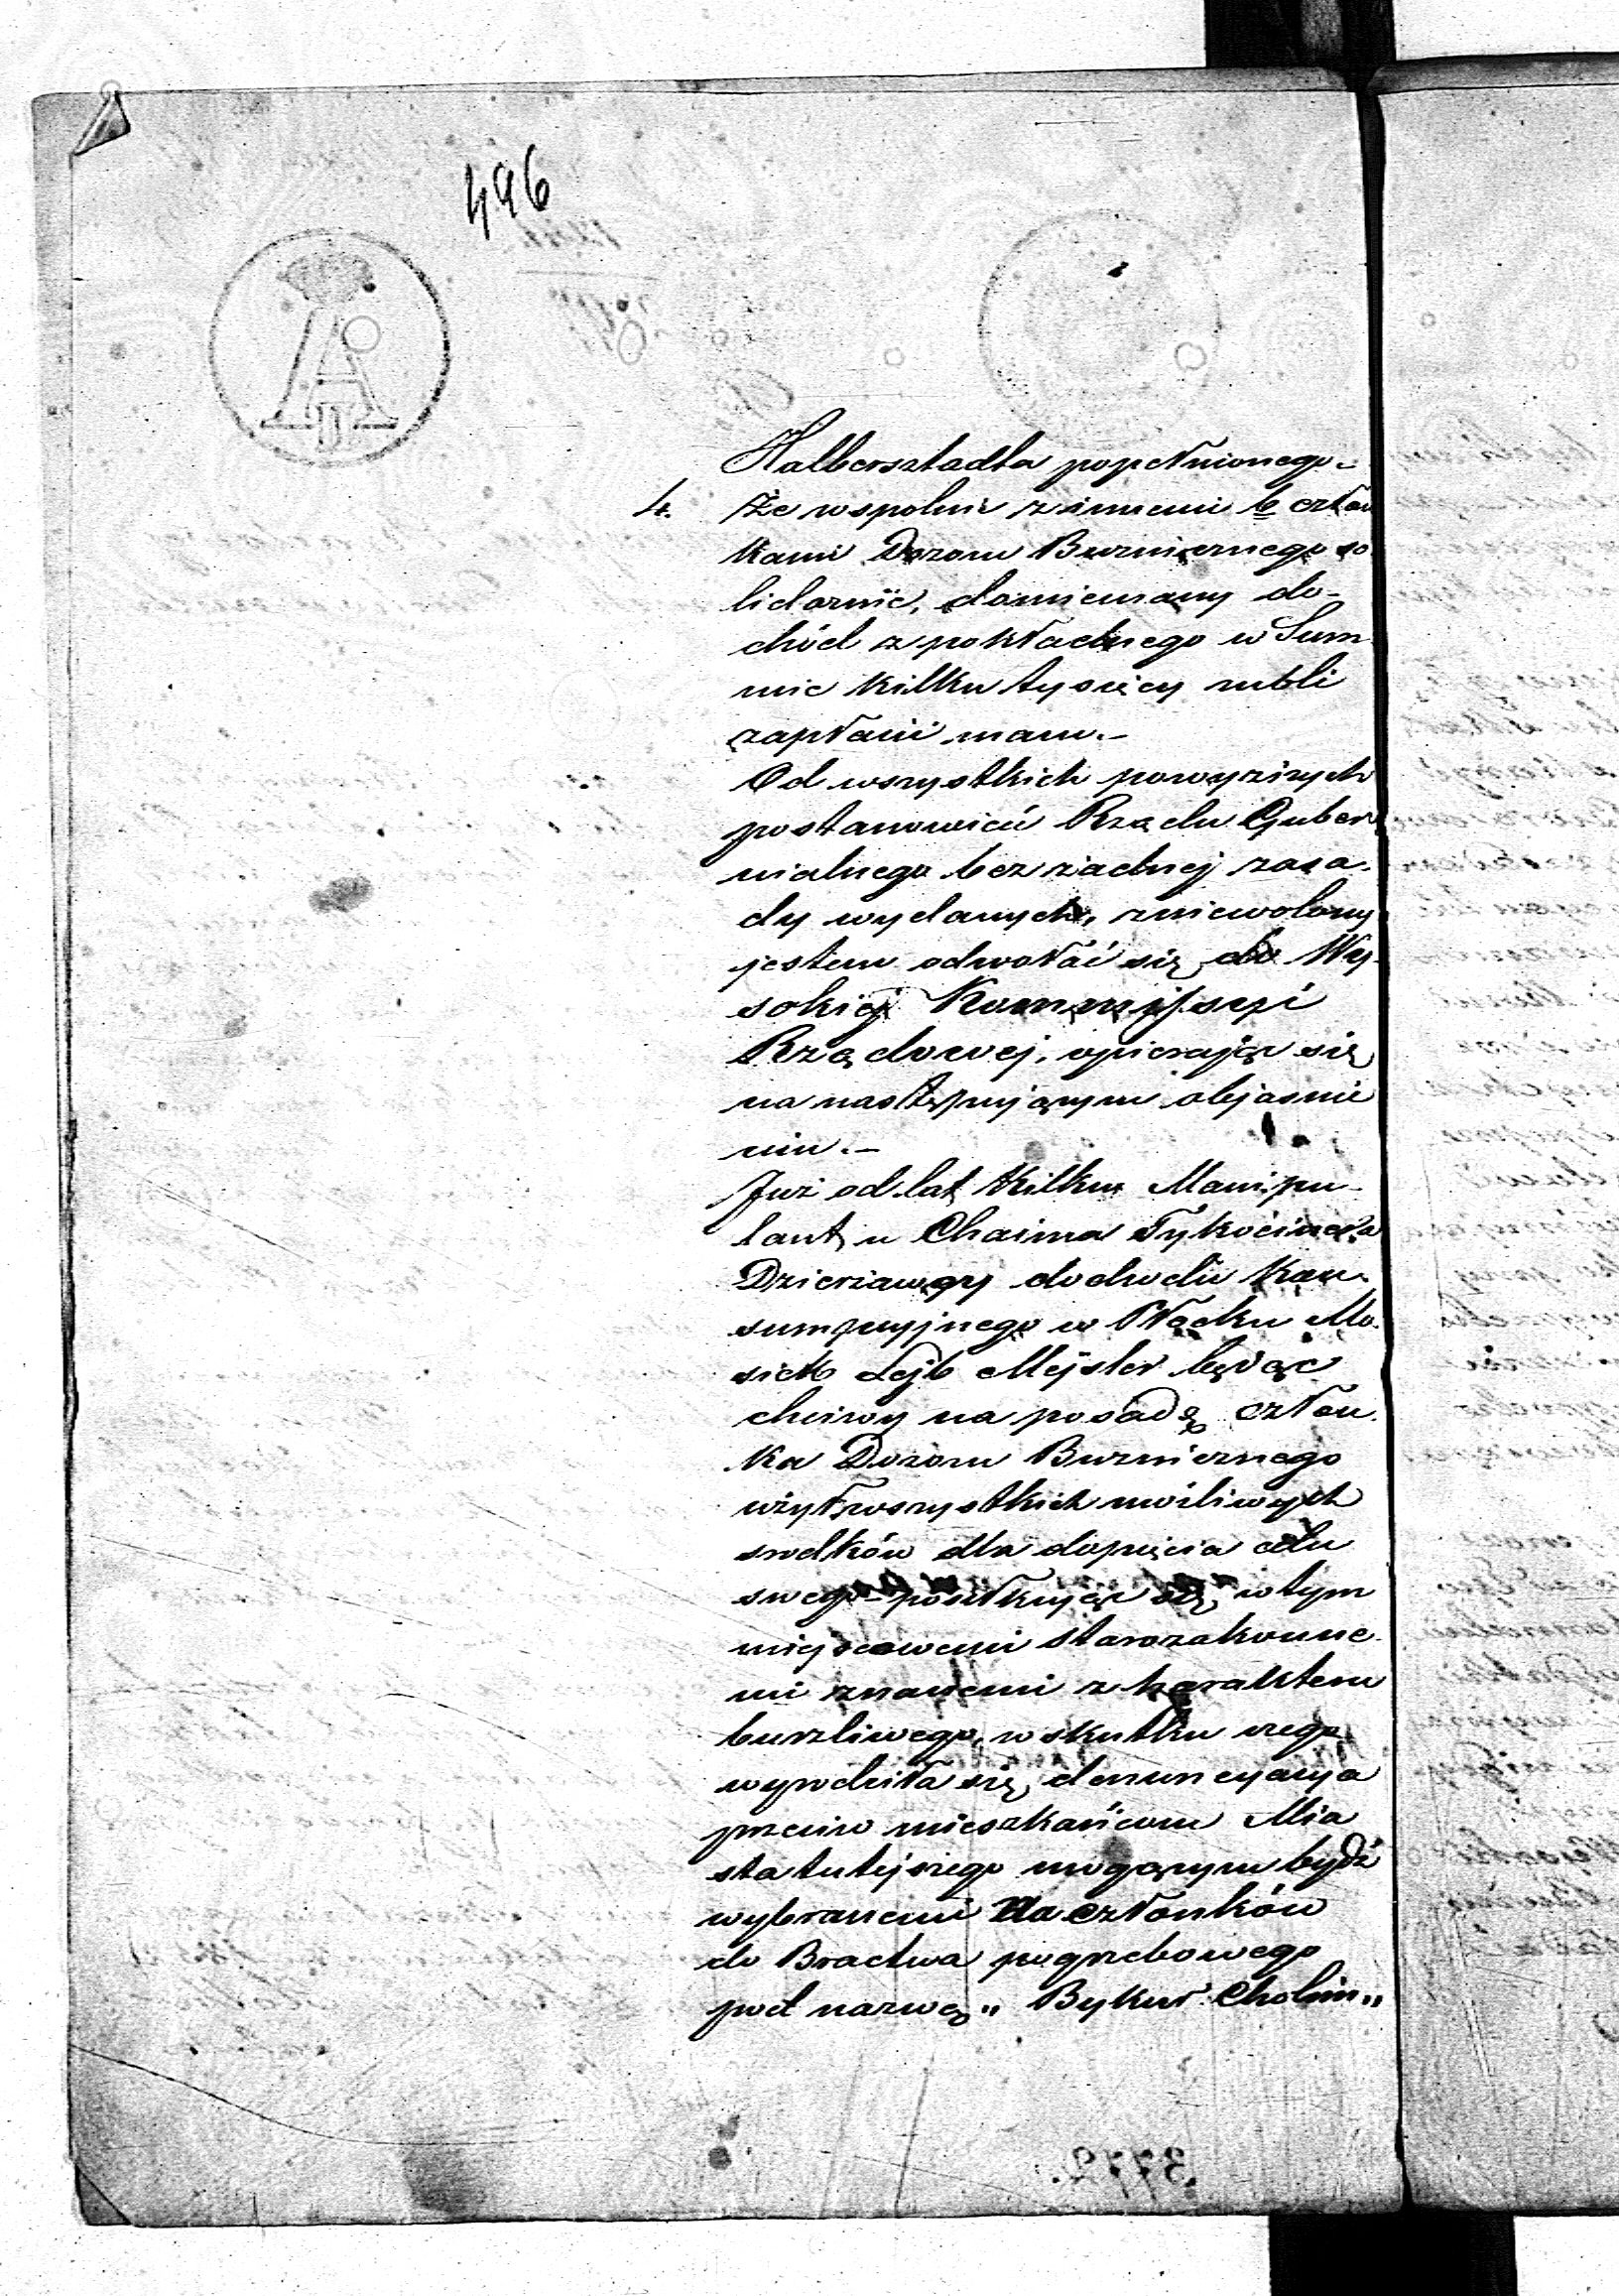 496
Halbersztadta popełnionego.-
4. Że wspolnie z innemi 6 człon
kami Dozoru Bużnicznego so
lidarnie, domiemany do-
chód z pokładnego w Sum
mie kilku tysięcy rubli
zapłacić mam.-
Od wszystkich powyższych
postanowień Rządu Guber
nialnego bez żadnej zasa-
dy wydanych, zniewolony
jestem odwołać się do Wy-
sokiej Kommissyi
Rządowej, opierając się
na następującym objasnie
niu.-
Już od lat kilku Manipu-
lant u Chaima Tykocinera
Dzierżawcy dochodu Kon-
sumpcyjnego w Płocku Mo-
siek Lejb Mejster będąc
chciwy na posadę człon-
ka Dozoru Bużnicznego
użył wszystkich możliwych
srodków dla dopięcia celu
swego posiłkując się w tym
miejscowemi starozakonne-
mi znanemi z harakteru
burzliwego, w skutku czego
wyrodziła się denuncyacya
przeciw mieszkańcom Mia
sta tutejszego mogącym bydź
wybranemi na członków
do Bractwa pogrzebowego
pod nazwą „ Bykur Cholim„
3772.